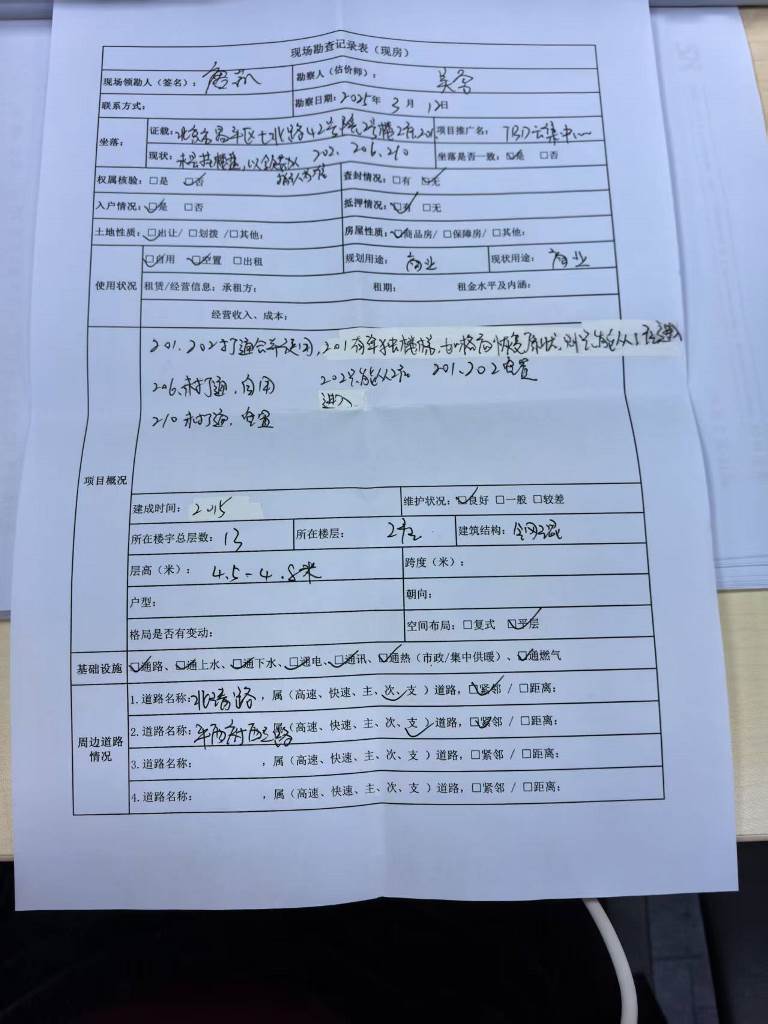 现场勘查记录表（现房）
现场领勘人（签名）： 勘察人（估价师）： 吴
联系方式： 勘察日期：2025年 3 月 12日
坐落： 证载：北京市昌平区七北路42号院2号楼2层201 项目推广名： TBD云集中心
现状： 202、206、210 坐落是否一致：☑是 □否
权属核验：□是 ☑否 查封情况：□有 ☑无
入户情况：☑是 □否 抵押情况：☑有 □无
土地性质：☑出让/ □划拨 /□其他： 房屋性质：☑商品房/ □保障房/ □其他：
使用状况 ☑自用 ☑空置 □出租 规划用途： 商业 现状用途： 商业
租赁/经营信息：承租方： 租期： 租金水平及内涵：
经营收入、成本：
项目概况
201、202打通合并使用，201有单独楼梯，如将来恢复原状，则只能从1层进入
206未打通，自用 202只能从2层进入 201、202空置
210未打通，空置
建成时间： 2015 维护状况：☑良好 □一般 □较差
所在楼宇总层数： 13 所在楼层： 2层 建筑结构：钢混
层高（米）： 4.5-4.8米 跨度（米）：
户型： 朝向：
格局是否有变动： 空间布局：□复式 ☑平层
基础设施 ☑通路、☑通上水、☑通下水、☑通电、☑通讯、☑通热（市政/集中供暖）、☑通燃气
周边道路情况 1.道路名称：北清路，属（高速、快速、主、次、支 ）道路，☑紧邻 / □距离：
2.道路名称：平西府西路，属（高速、快速、主、次、支 ）道路，☑紧邻 / □距离：
3.道路名称： ，属（高速、快速、主、次、支 ）道路，□紧邻 / □距离：
4.道路名称： ，属（高速、快速、主、次、支 ）道路，□紧邻 / □距离：